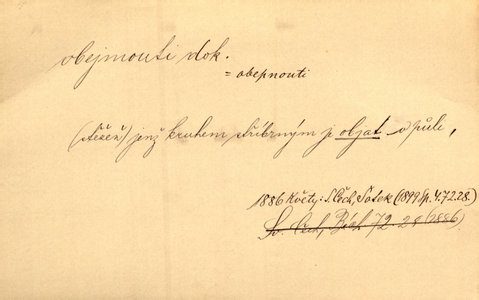 obejmouti dok.
= obepnouti
(stěžeň) jenž kruhem stříbrným je objat v půli,
1886 Květy: S. Čech, Šotek (1899 Sp. 4.72.28.)
Sv. Čech, 72. 28 (1886)